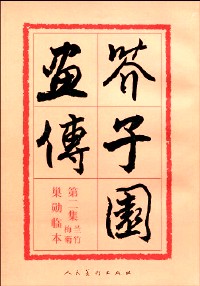 芥子園
畫傳
第二集 兰竹梅菊
巢勋临本
人民美术出版社